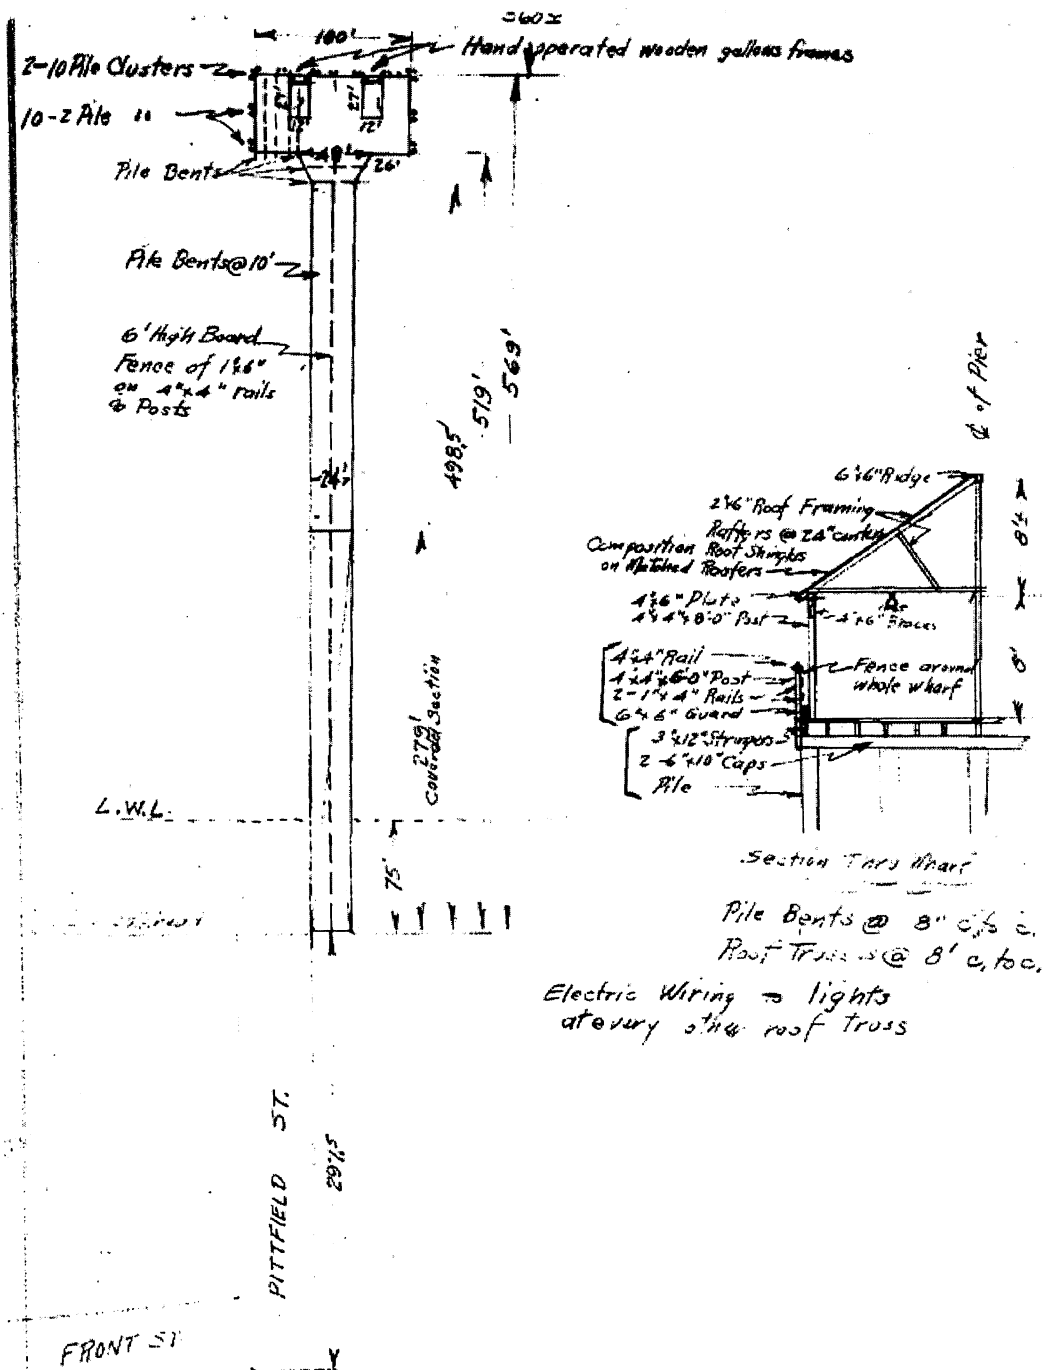 100'
Hand opperated wooden gallons frames
2-10 Pile Clusters
10-2 Pile "
27'
27'
12'
26'
Pile Bents
Pile Bents @ 10'
6' High Board
Fence of 1"x6"
on 4"x4" rails
& Posts
24'
498.5'
519'
569'
279'
Covered Section
L.W.L.
75'
PITTFIELD ST.
297.5
FRONT ST
℄ of Pier
6"x6" Ridge
2"x6" Roof Framing
Rafters @ 24" centers
Composition Roof Shingles
on Matched Roofers
4"x6" Plate
4"x4"x8'-0" Post
4"x6" Braces
8'±
8'
4"x4" Rail
4"x4"x6'-0" Post
2-1"x4" Rails
6"x6" Guard
Fence around
whole wharf
3"x12" Stringers
2-6"x10" Caps
Pile
Section Thru Wharf
Pile Bents @ 8" c. to c.
Roof Trusses @ 8' c. to c.
Electric Wiring - lights
at every other roof truss